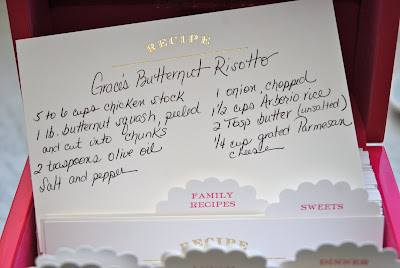 RECIPE
Grace's Butternut Risotto
5 to 6 cups chicken stock
1 lb. butternut squash, peeled
and cut into chunks
2 teaspoons olive oil
Salt and pepper
1 onion, chopped
1 1/2 cups Arborio rice
2 Tbsp butter (unsalted)
1/4 cup grated Parmesan
cheese
FAMILY
RECIPES
SWEETS
RECIPE
DINNER